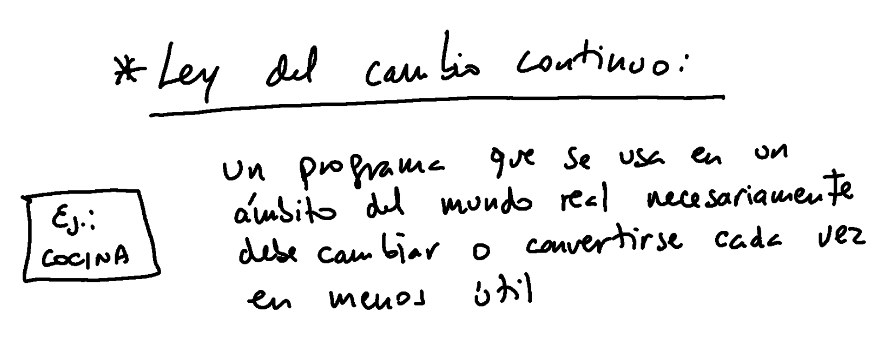 * Ley del cambio continuo:
Un programa que se usa en un
ámbito del mundo real necesariamente
debe cambiar o convertirse cada vez
en menos útil
Ej.:
COCINA